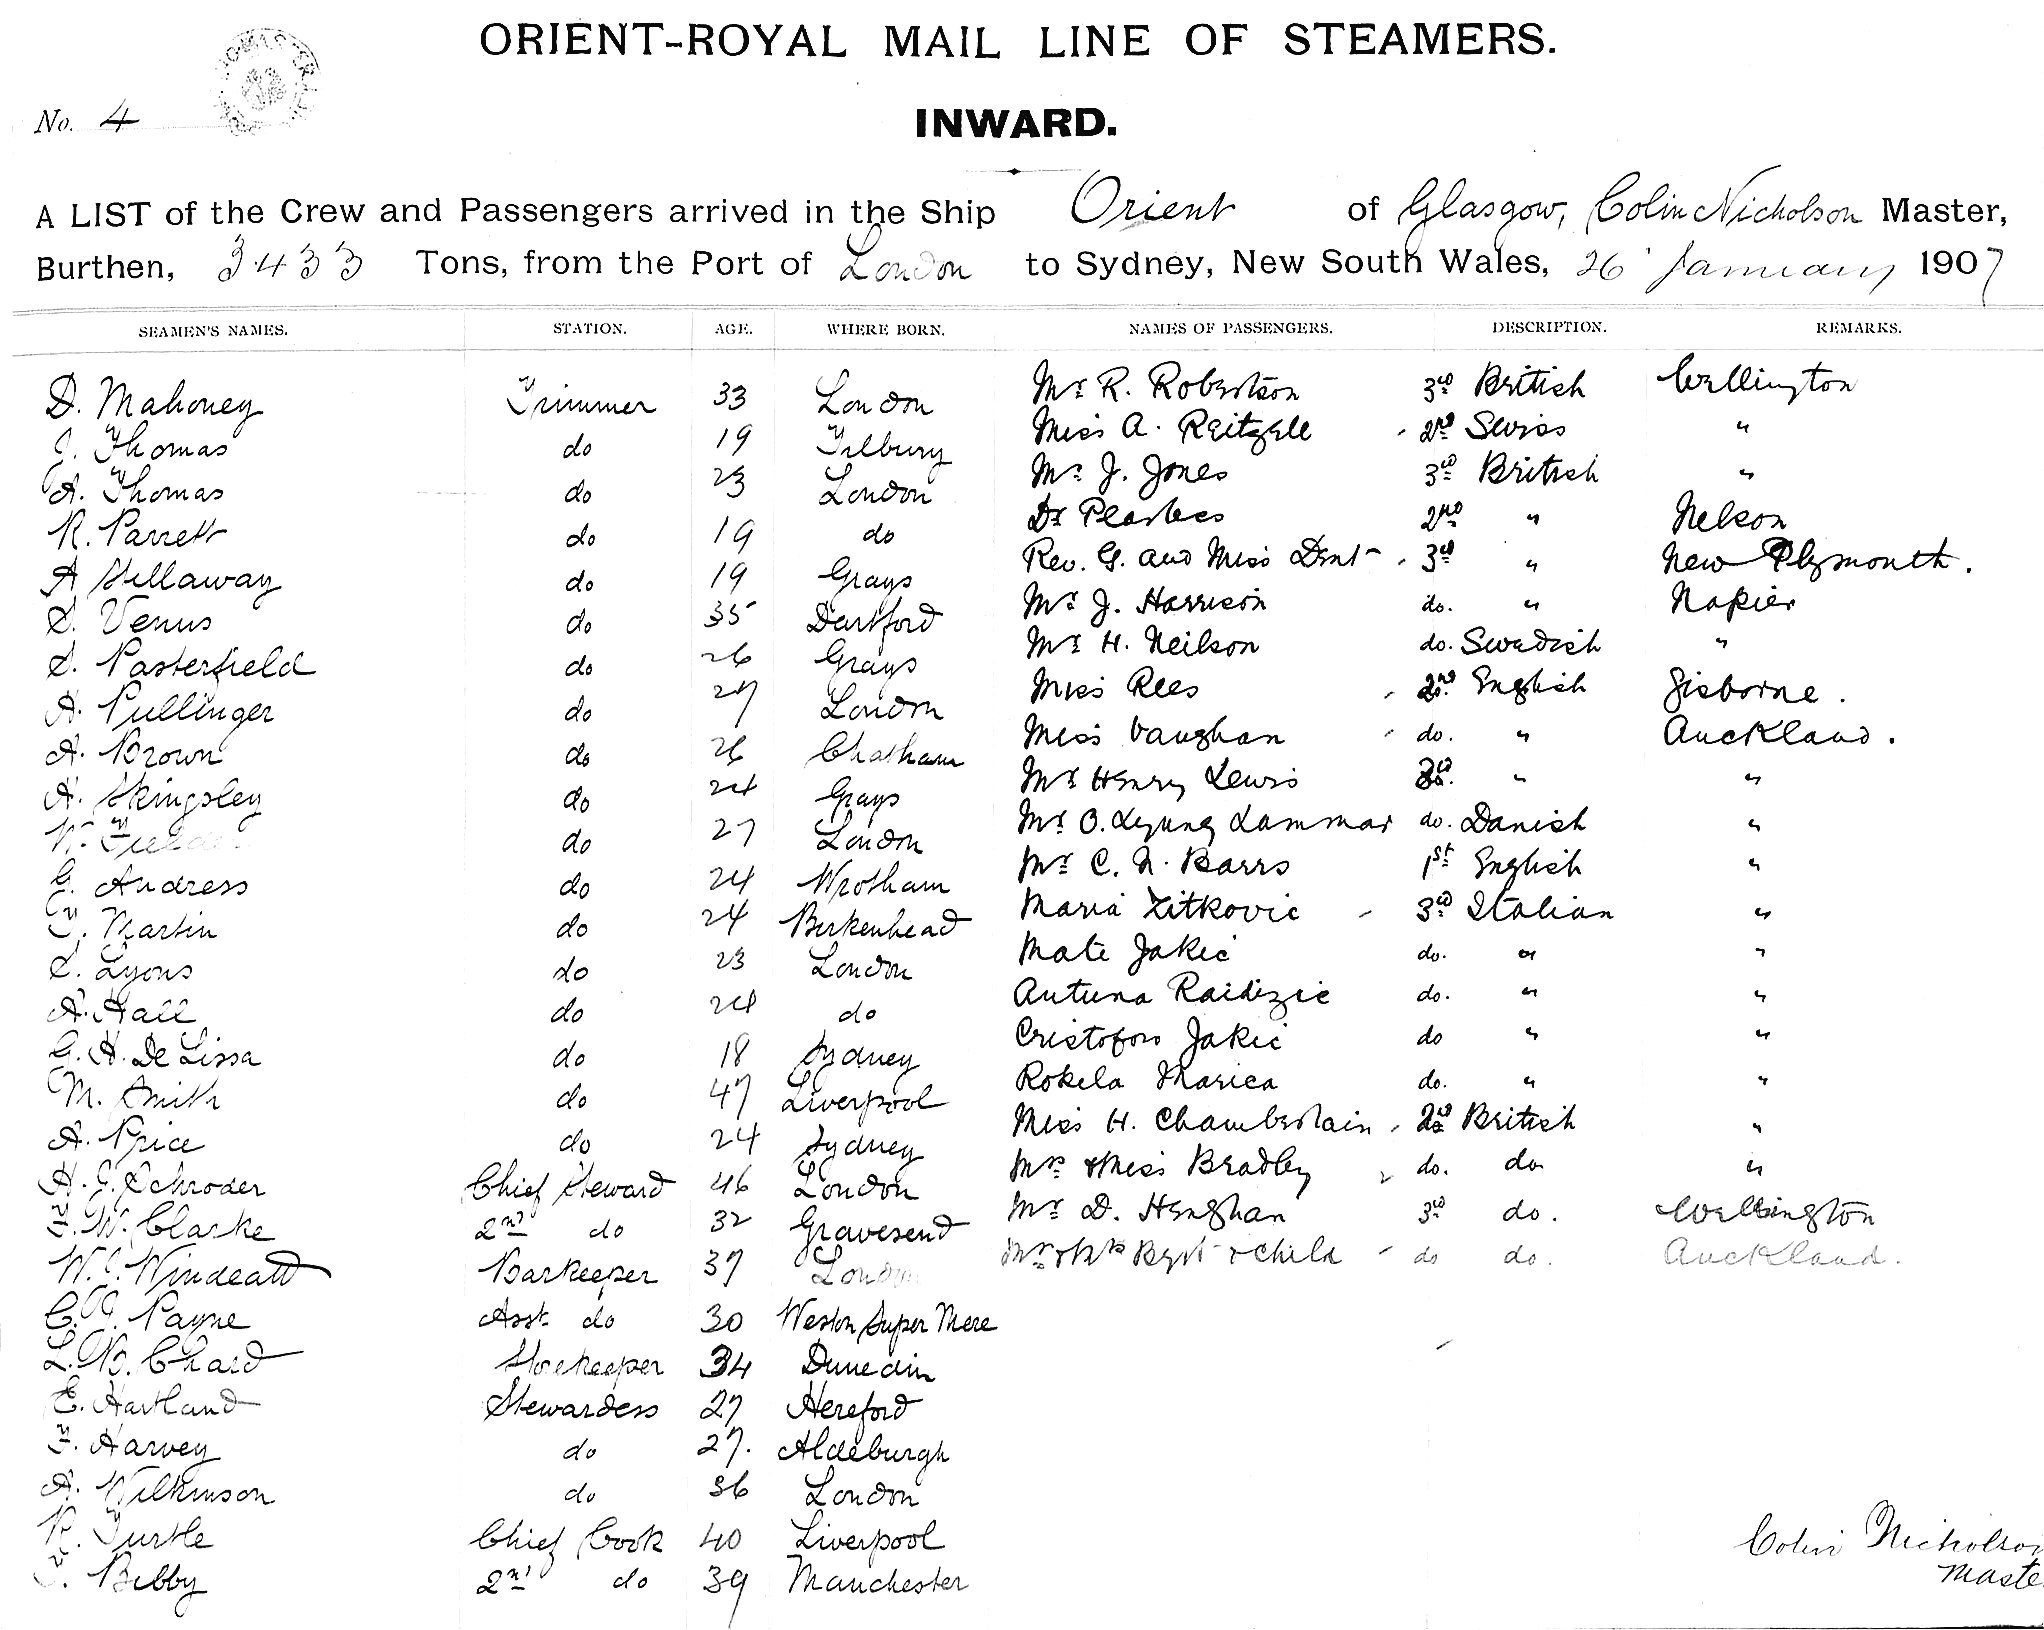 ORIENT-ROYAL MAIL LINE OF STEAMERS.
No. 4
INWARD.
A LIST of the Crew and Passengers arrived in the Ship Orient of Glasgow, Colin Nicholson Master,
Burthen, 3433 Tons, from the Port of London to Sydney, New South Wales, 26 January 1907
SEAMEN'S NAMES. STATION. AGE. WHERE BORN. NAMES OF PASSENGERS. DESCRIPTION. REMARKS.
D. Mahoney Trimmer 33 London Mr R. Robertson 3rd British Wellington
J. Thomas do 19 Tilbury Miss A. Reitzell 2nd Swiss "
A. Thomas do 23 London Mr J. Jones 3rd British "
R. Parrett do 19 do Dr 2nd " Nelson
A Sellaway do 19 Grays Rev. G. and Miss Dent 3rd " New Plymouth.
S. Venus do 35 Dartford Mr J. Harrison do. " Napier
S. Pasterfield do 26 Grays Mr H. Neilson do. Swedish "
A. Pullinger do 27 London Miss Rees 2nd English Gisborne.
A. Brown do 26 Chatham Miss Vaughan do. " Auckland.
A. Skingsley do 24 Grays Mr Henry Lewis 3rd " "
W. do 27 London Mr O. Lammar do. Danish "
G. Andress do 24 Wrotham Mr C. N. Barrs 1st English "
T. Martin do 24 Birkenhead Maria Zitkovic 3rd Italian "
S. Lyons do 23 London Mate Jakic do. " "
A. Hall do 24 do Antuna Raidizic do. " "
G. H. De Lissa do 18 Sydney Cristoforo Jakic do " "
M. Smith do 47 Liverpool Rokela Marica do. " "
A. Price do 24 Sydney Miss H. Chamberlain 2nd British "
H. G. Schroder Chief Steward 46 London Mrs & Miss Bradley do. do "
F. W. Clarke 2nd do 32 Gravesend Mr D. Henghan 3rd do. Wellington
W. J. Windeatt Barkeeper 37 London Mr & Mrs & Child do do. Auckland.
C. G. Payne Asst. do 30 Weston Super Mere
L. B. Chard Storekeeper 34 Dunedin
E. Hartland Stewardess 27 Hereford
F. Harvey do 27. Aldeburgh
A. Wilkinson do 36 London
R. Turtle Chief Cook 40 Liverpool
T. Bibby 2nd do 39 Manchester
Colin Nicholson
Maste